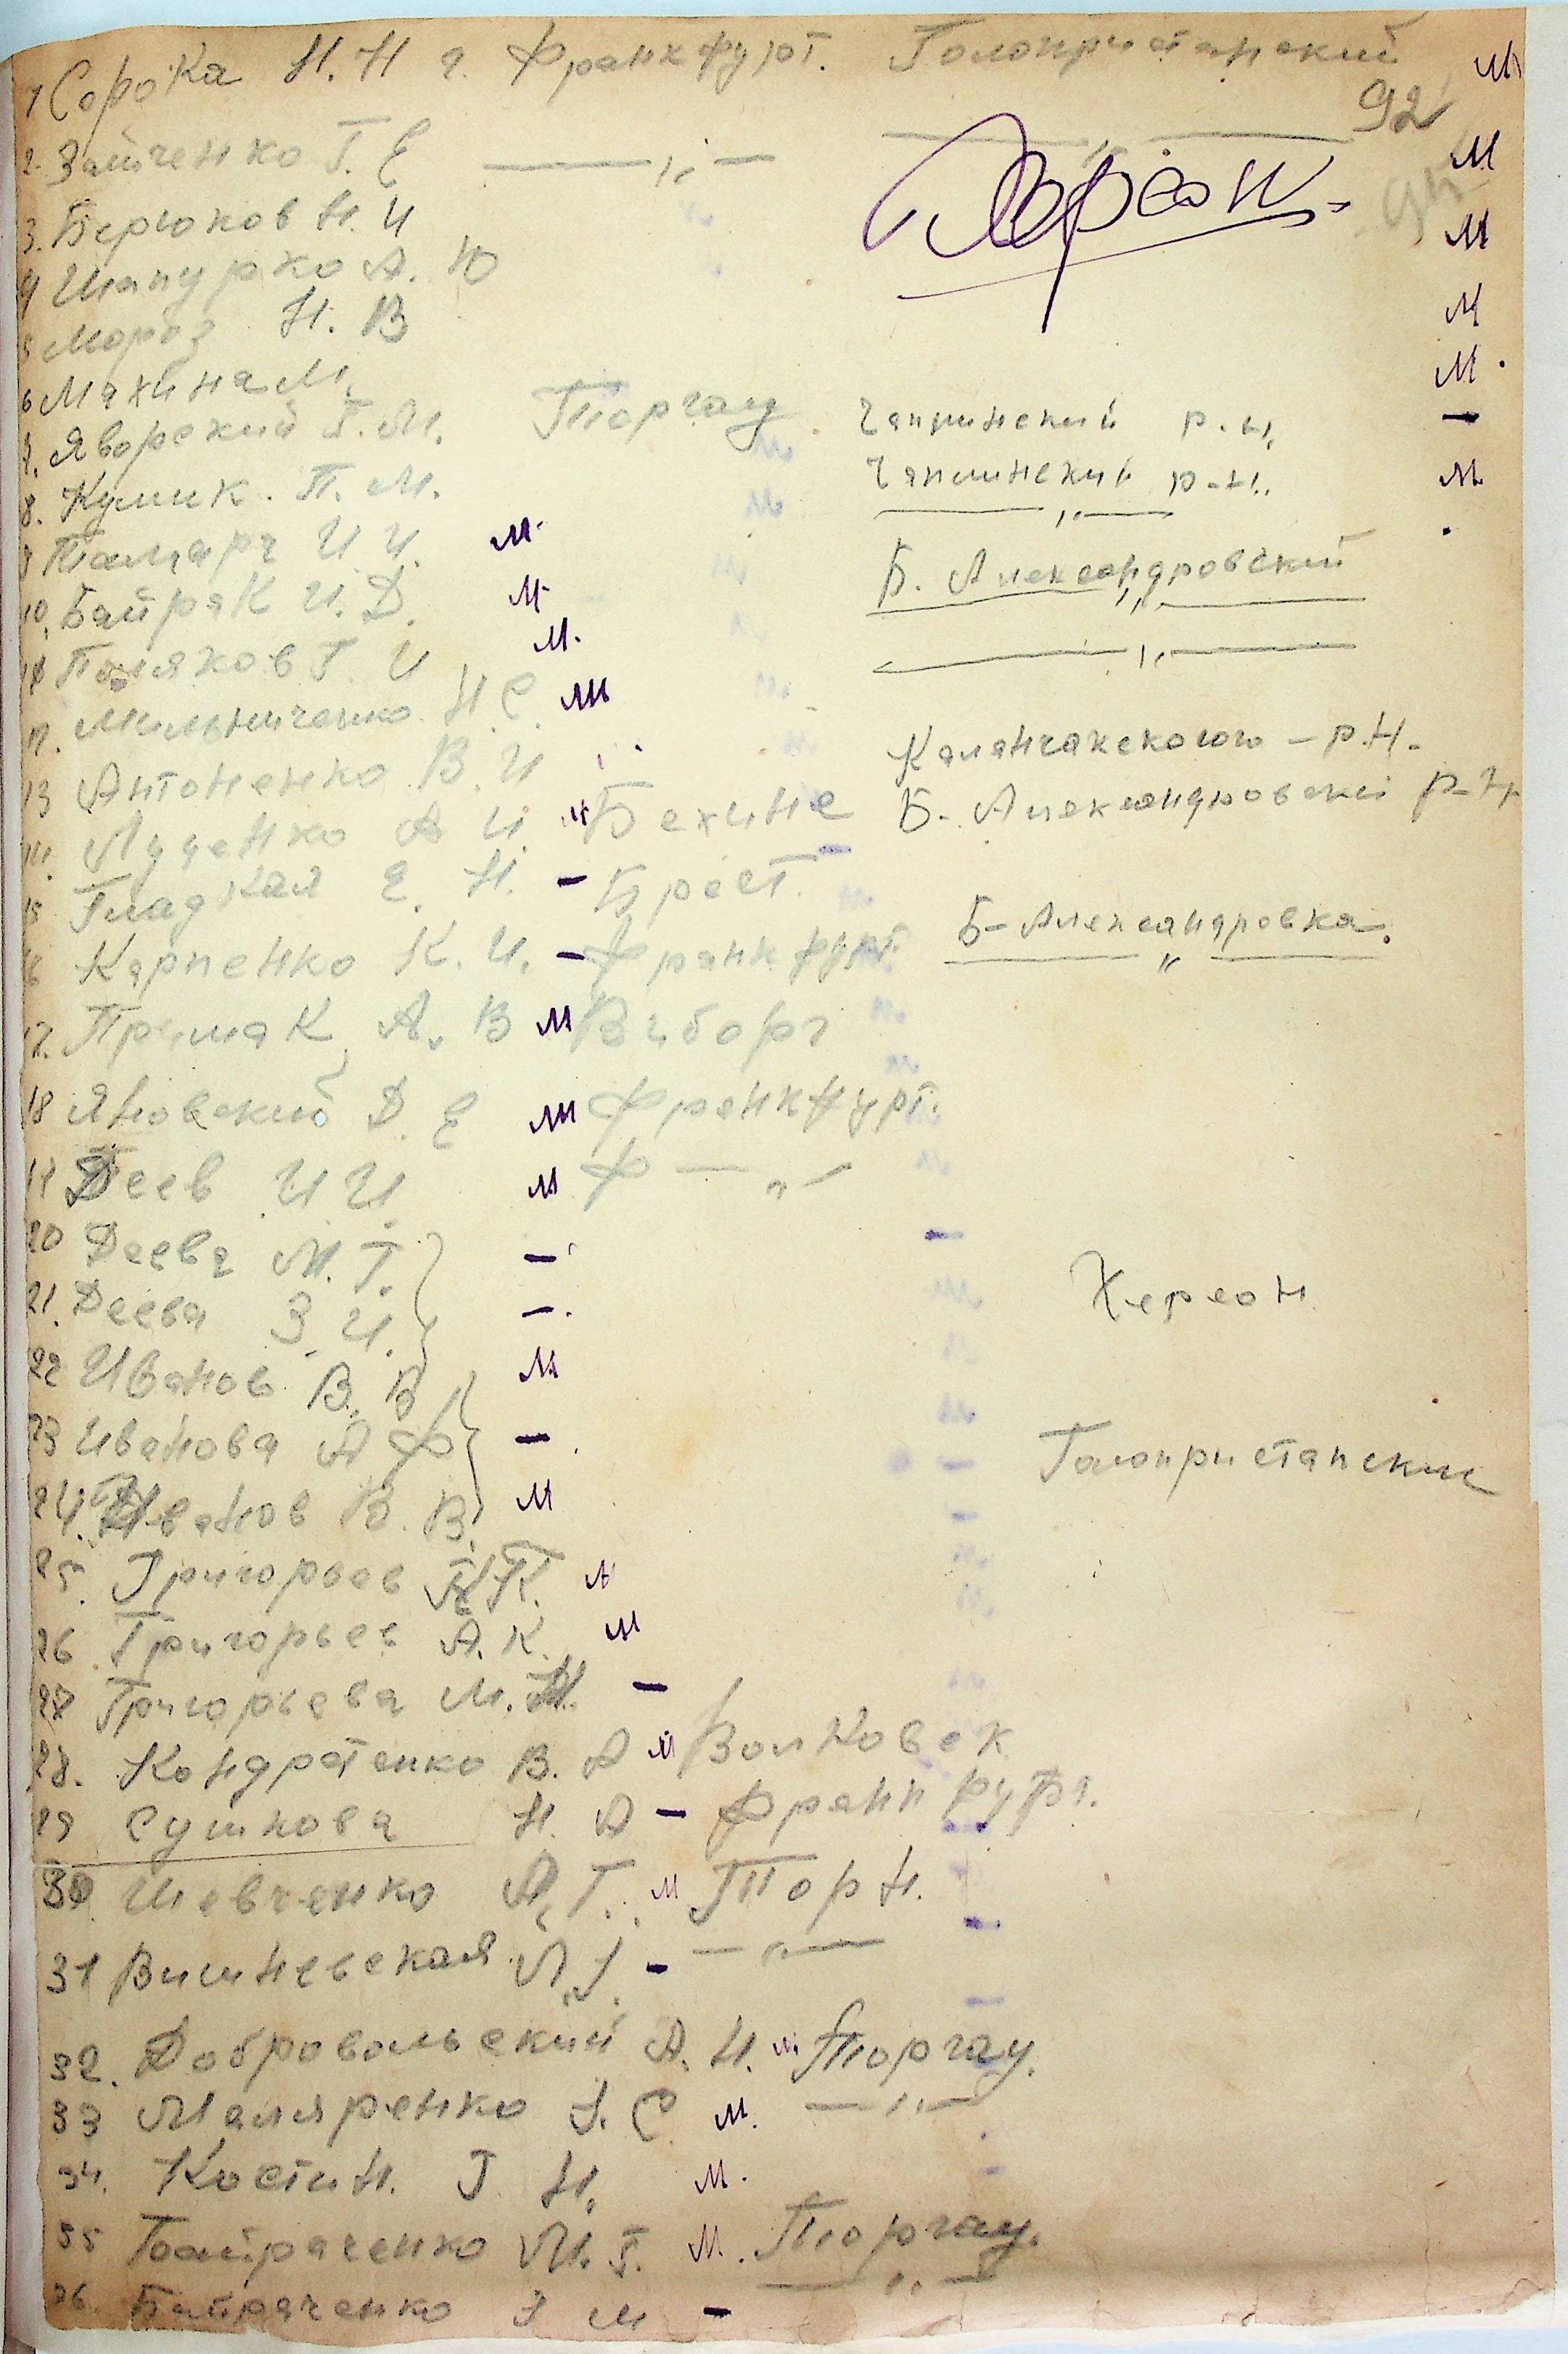 1 Сорока Н. Н г. Франкфурт. Голопристанский М
92
2. Зайченко Г. Е —„— —„— М
Херсон.
3. Бирюков Н. И М
4 Шапурко А. Ю М
5 Мороз Н. В М.
6 Махина М. —
7. Яворский Г. М. Торгау. Чаплинский р.н. М
8. Кулик. П. М. Чаплинский р-н.
9 И И. М. —„—
10. Байрак И. Д. М. Б. Александровский
11 Поляков Г. И М. —„—
12. Мельниченко Н. С. М —„—
13 Антоненко В. И Каланчакского – р.н.
14. Луценко А И. М Бехине Б. Александровский р-н
15 Гладкая Е. Н. – Брест.
16 Карпенко К. И. – Франкфурт. Б-Александровка.
—„—
17. Примак А. В М Виборг
18 Яновский Д. Е М Франкфурт.
19 Деев И И М Ф —„—
20 Деева М. Г. —
21. Деева З. И. — Херсон
22 Иванов В. В М
23 Иванова А Ф — Голопристанский
24. Иванов В. В. М
25. Григорьев К. М
26 Григорьев А. К. М
27 Григорьева М. Н. —
28. Кондратенко В. А М Волковск
29 Сушкова Н. А – Франкфурт.
30 Шевченко А. Г. М Торн.
31 Вишневская Л. Г. – —„—
32. Добровольский А. Н. М Торгау.
33 Маляренко Г. С М. —„—
34. Костин. Г. Н. М.
35 Байраченко М. Г. М. Торгау.
36. Байраченко З М – —„—